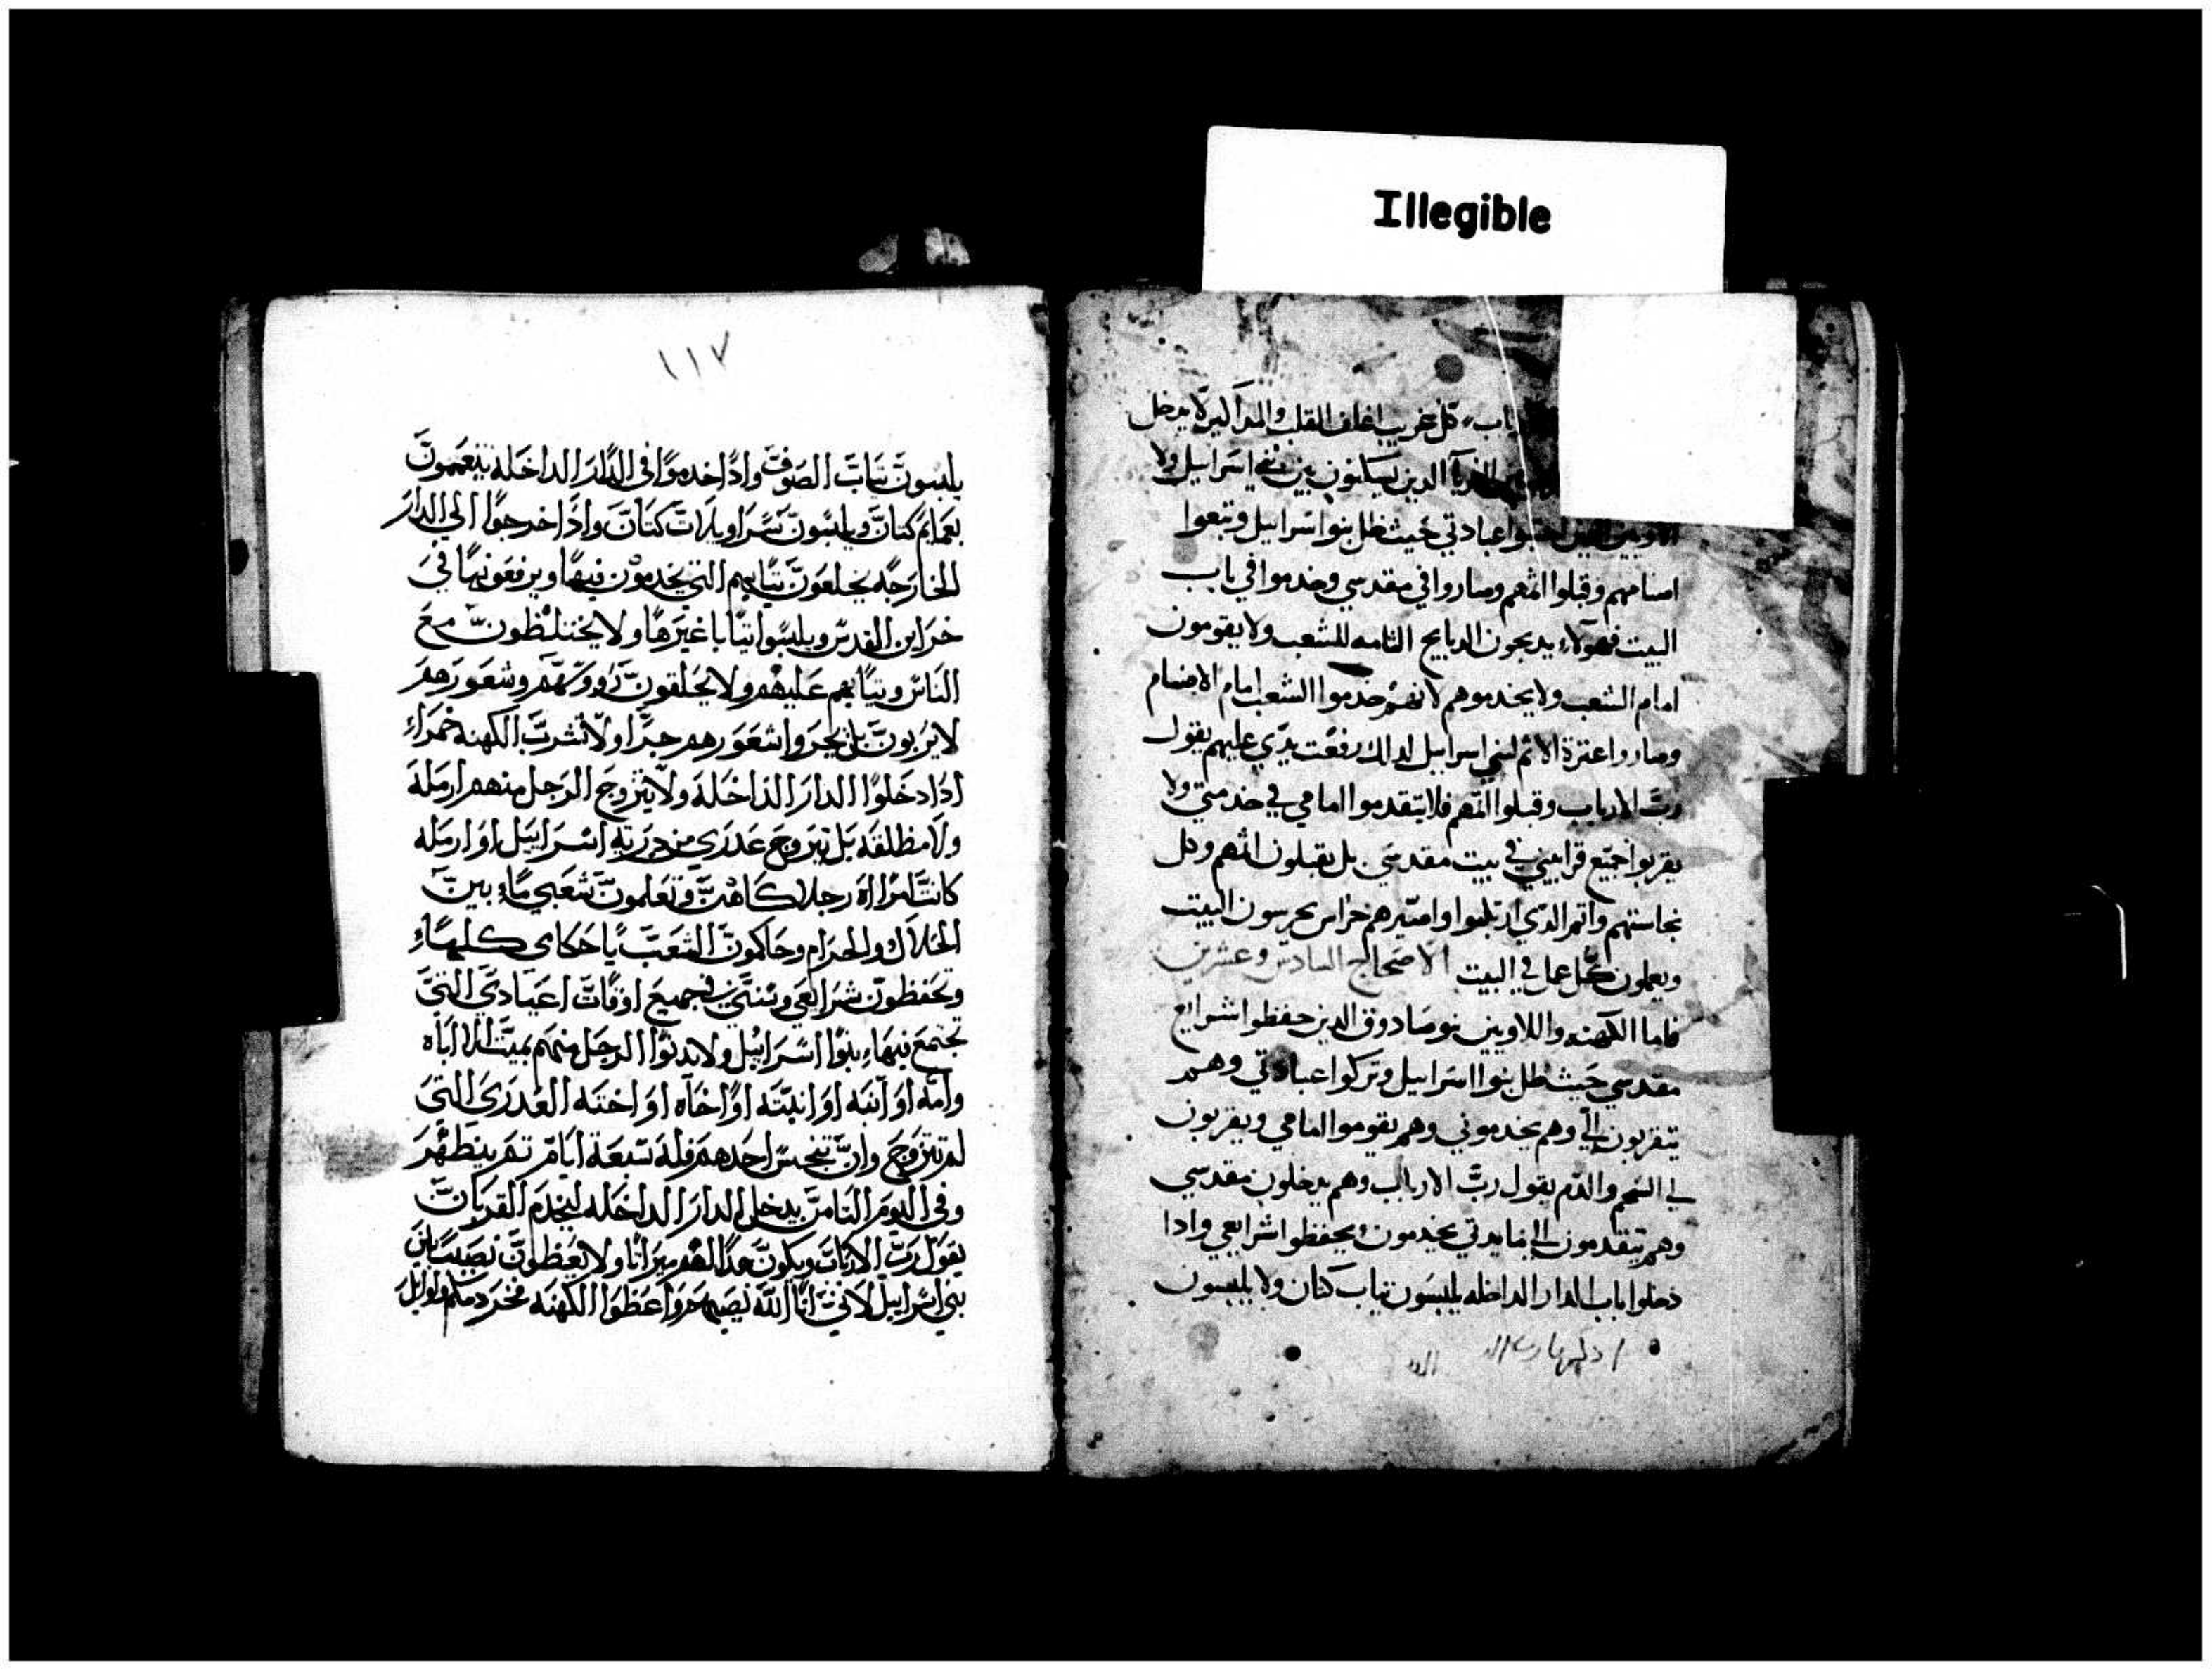 Illegible
كل غريب اغلف القلب لا يدخل
الذين يسكنون بين بني اسراييل ولا
عبادتي حيث ظل بنوا اسراييل وتبعوا
اصنامهم وقبلوا اثمهم وصاروا في مقدسي وخدموا في باب
البيت فهولاء يدبحون الدبايح التامه للشعب ولا يقومون
امام الشعب ولا يخدموهم لانهم خدموا الشعب امام الاصنام
وصاروا عترة الاثم لبني اسراييل لدالك رفعت يدي عليهم يقول
رب الارباب وقبلوا اثمهم فلا يتقدموا امامي في خدمتي ولا
يقربوا جميع قرابيني في بيت مقدسي بل يقبلون اثمهم وكل
نجاستهم واتمر الدي ارتكبوا واصيرهم حراس يحرسون البيت
ويعلمون كل عمل في البيت الاصحاح السادس وعشرين
فاما الكهنه واللاويين بنو صادوق الدين حفظوا شرايع
مقدسي حيث ظل بنوا اسراييل وتركوا عبادتي وهم
يتقربون الي وهم يخدموني وهم يقوموا امامي ويقربون
لي الشحم والدم يقول رب الارباب وهم يدخلون مقدسي
وهم يتقدمون الي مايدتي يخدمون ويحفظوا شرايعي وادا
دخلوا باب الدار الداخله يلبسون تياب كتان ولا يلبسون
١١٧
يلبسون تياب الصوف وادا خدموا في الدار الداخله يتعممون
بعمايم كتان ويلبسون سراويلات كتان وادا خرجوا الي الدار
الخارجه يخلعون تيابهم التي يخدمون فيها ويرفعونها في
خزاين القدس ويلبسوا تيابا غيرها ولا يختلطون مع
الناس وتيابهم عليهم ولا يحلقون رووسهم وشعورهم
لا يربون بل يجزوا شعورهم جزا ولا تشرب الكهنه خمراء
ادا دخلوا الدار الداخله ولا يتزوج الرجل منهم ارمله
ولا مطلقه بل يتزوج عدري من درية اسراييل او ارمله
كانت امراة رجل كاهن وتعلمون شعبي ماء بين
الحلال والحرام وحاكمون الشعب باحكامي كلهاء
وتحفظون شرايعي وسنتي في جميع اوقات اعيادي التي
تجتمع فيهاء بنوا اسراييل ولا يدنوا الرجل منهم بميت الا اباه
وامه او ابنه او ابنته او اخاه او اخته العدري التي
لم تتزوج وان تنجس احدهم فله سبعة ايام تم يتطهر
وفي اليوم التامن يدخل الدار الداخله ليخدم القربان
يقول رب الارباب ويكون هدا لهم ميراتا ولا يعطون نصيبا بين
بني اسراييل لاني انا الله نصيبهم